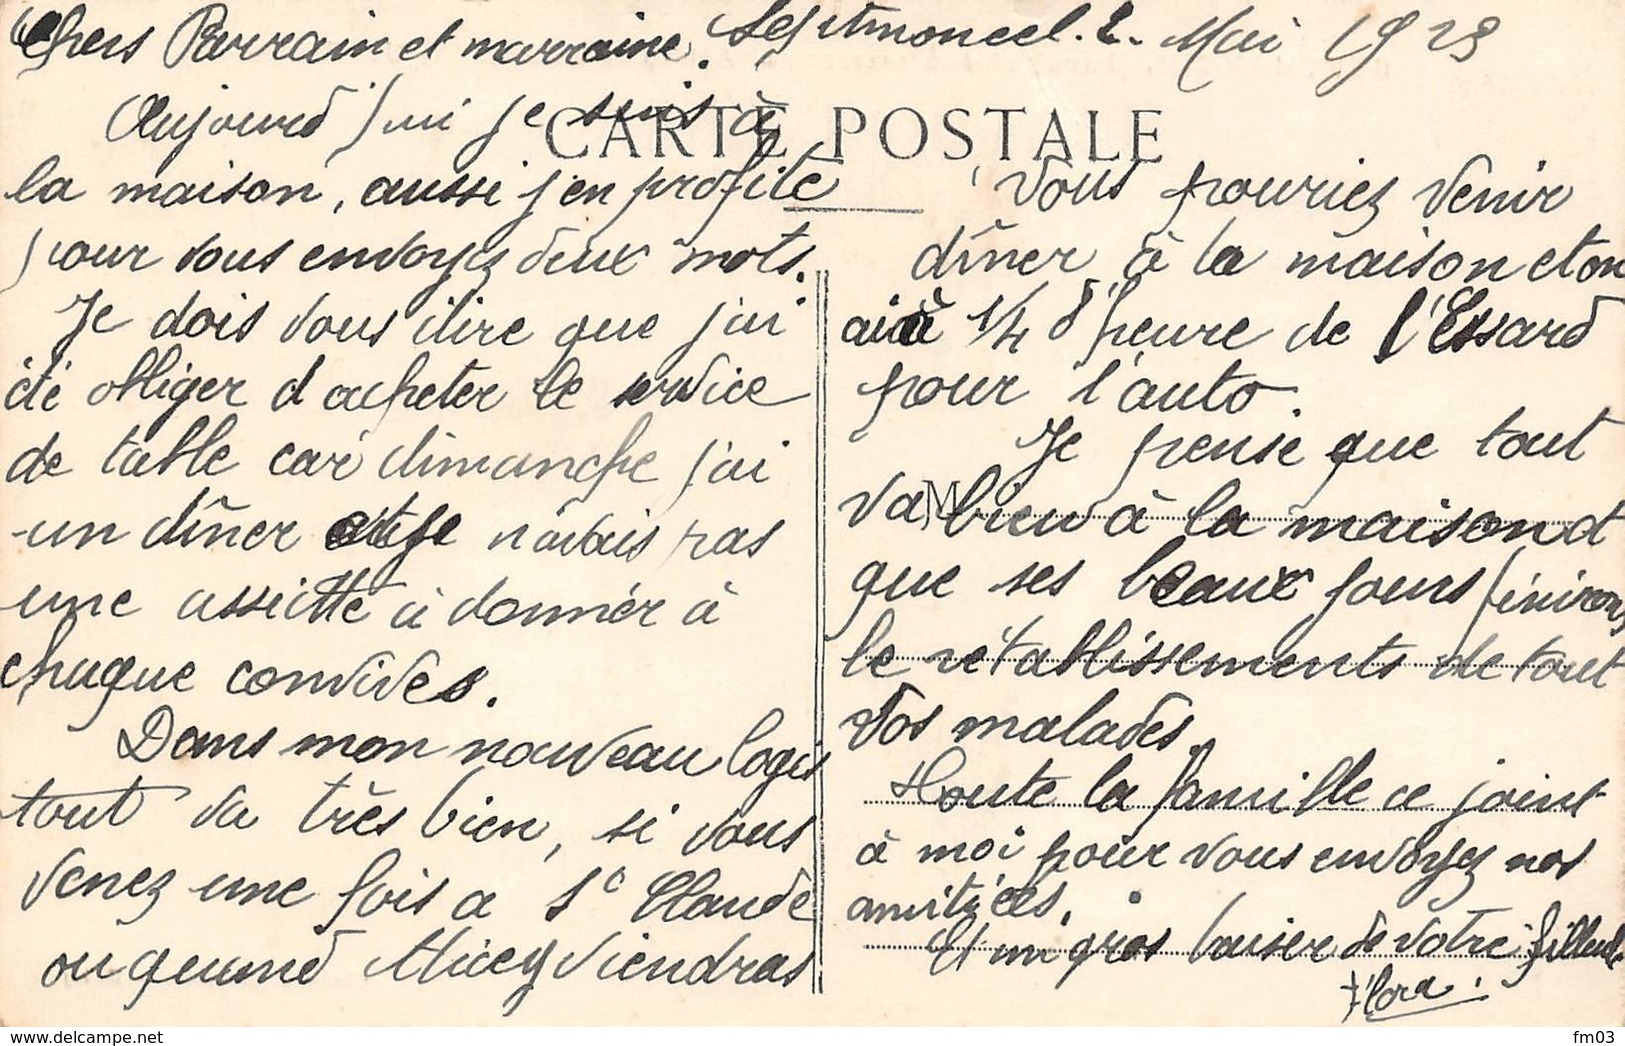 Chers Parrain et marraine. Septmoncel. 2. Mai 1923
CARTE POSTALE
Aujourd'hui je suis à
la maison, aussi j'en profite
pour vous envoyez deux mots.
Je dois vous dire que j'ai
été obliger d'acheter le service
de table car dimanche j'ai
un dîner et je n'avais pas
une assiette à donner à
chaque convives.
Dans mon nouveau logis
tout va très bien, si vous
venez une fois a St Claude
ou quand Alice y viendras
Vous pouriez venir
dîner à la maison et on
ai à 1/4 d'heure de l'Essard
pour l'auto.
Je pense que tout
va bien à la maison et
que ses beaux jours finirons
le rétablissements de tout
vos malades.
Toute la famille ce joint
à moi pour vous envoyez nos
amitiées.
Et un gros baiser de votre filleule
Flora.
M
fm03